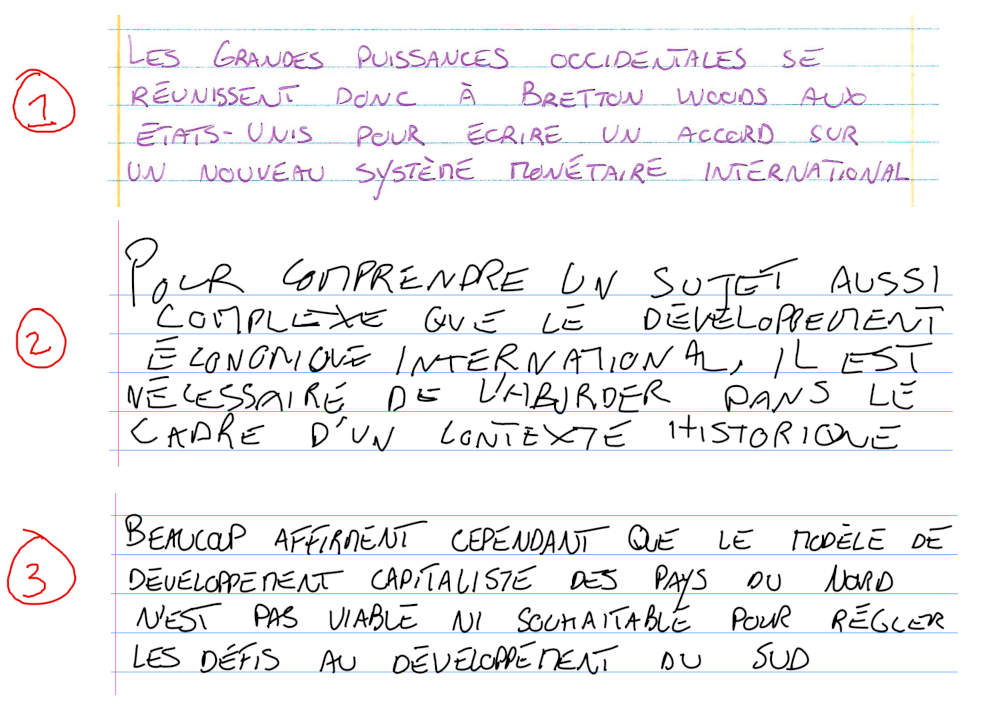 1
LES GRANDES PUISSANCES OCCIDENTALES SE
RÉUNISSENT DONC À BRETTON WOODS AUX
ÉTATS-UNIS POUR ÉCRIRE UN ACCORD SUR
UN NOUVEAU SYSTÈME MONÉTAIRE INTERNATIONAL
2
POUR COMPRENDRE UN SUJET AUSSI
COMPLEXE QUE LE DÉVELOPPEMENT
ÉCONOMIQUE INTERNATIONAL, IL EST
NÉCESSAIRE DE L'ABORDER DANS LE
CADRE D'UN CONTEXTE HISTORIQUE
3
BEAUCOUP AFFIRMENT CEPENDANT QUE LE MODÈLE DE
DÉVELOPPEMENT CAPITALISTE DES PAYS DU NORD
N'EST PAS VIABLE NI SOUHAITABLE POUR RÉGLER
LES DÉFIS AU DÉVELOPPEMENT DU SUD